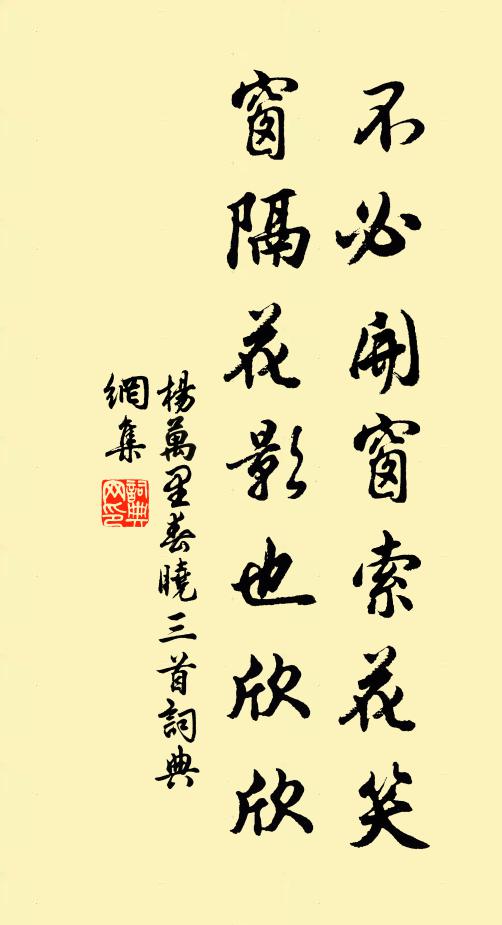 不必開窗索花笑
窗隔花影也欣欣
楊萬里春曉三首詞典
網集
詞典網印